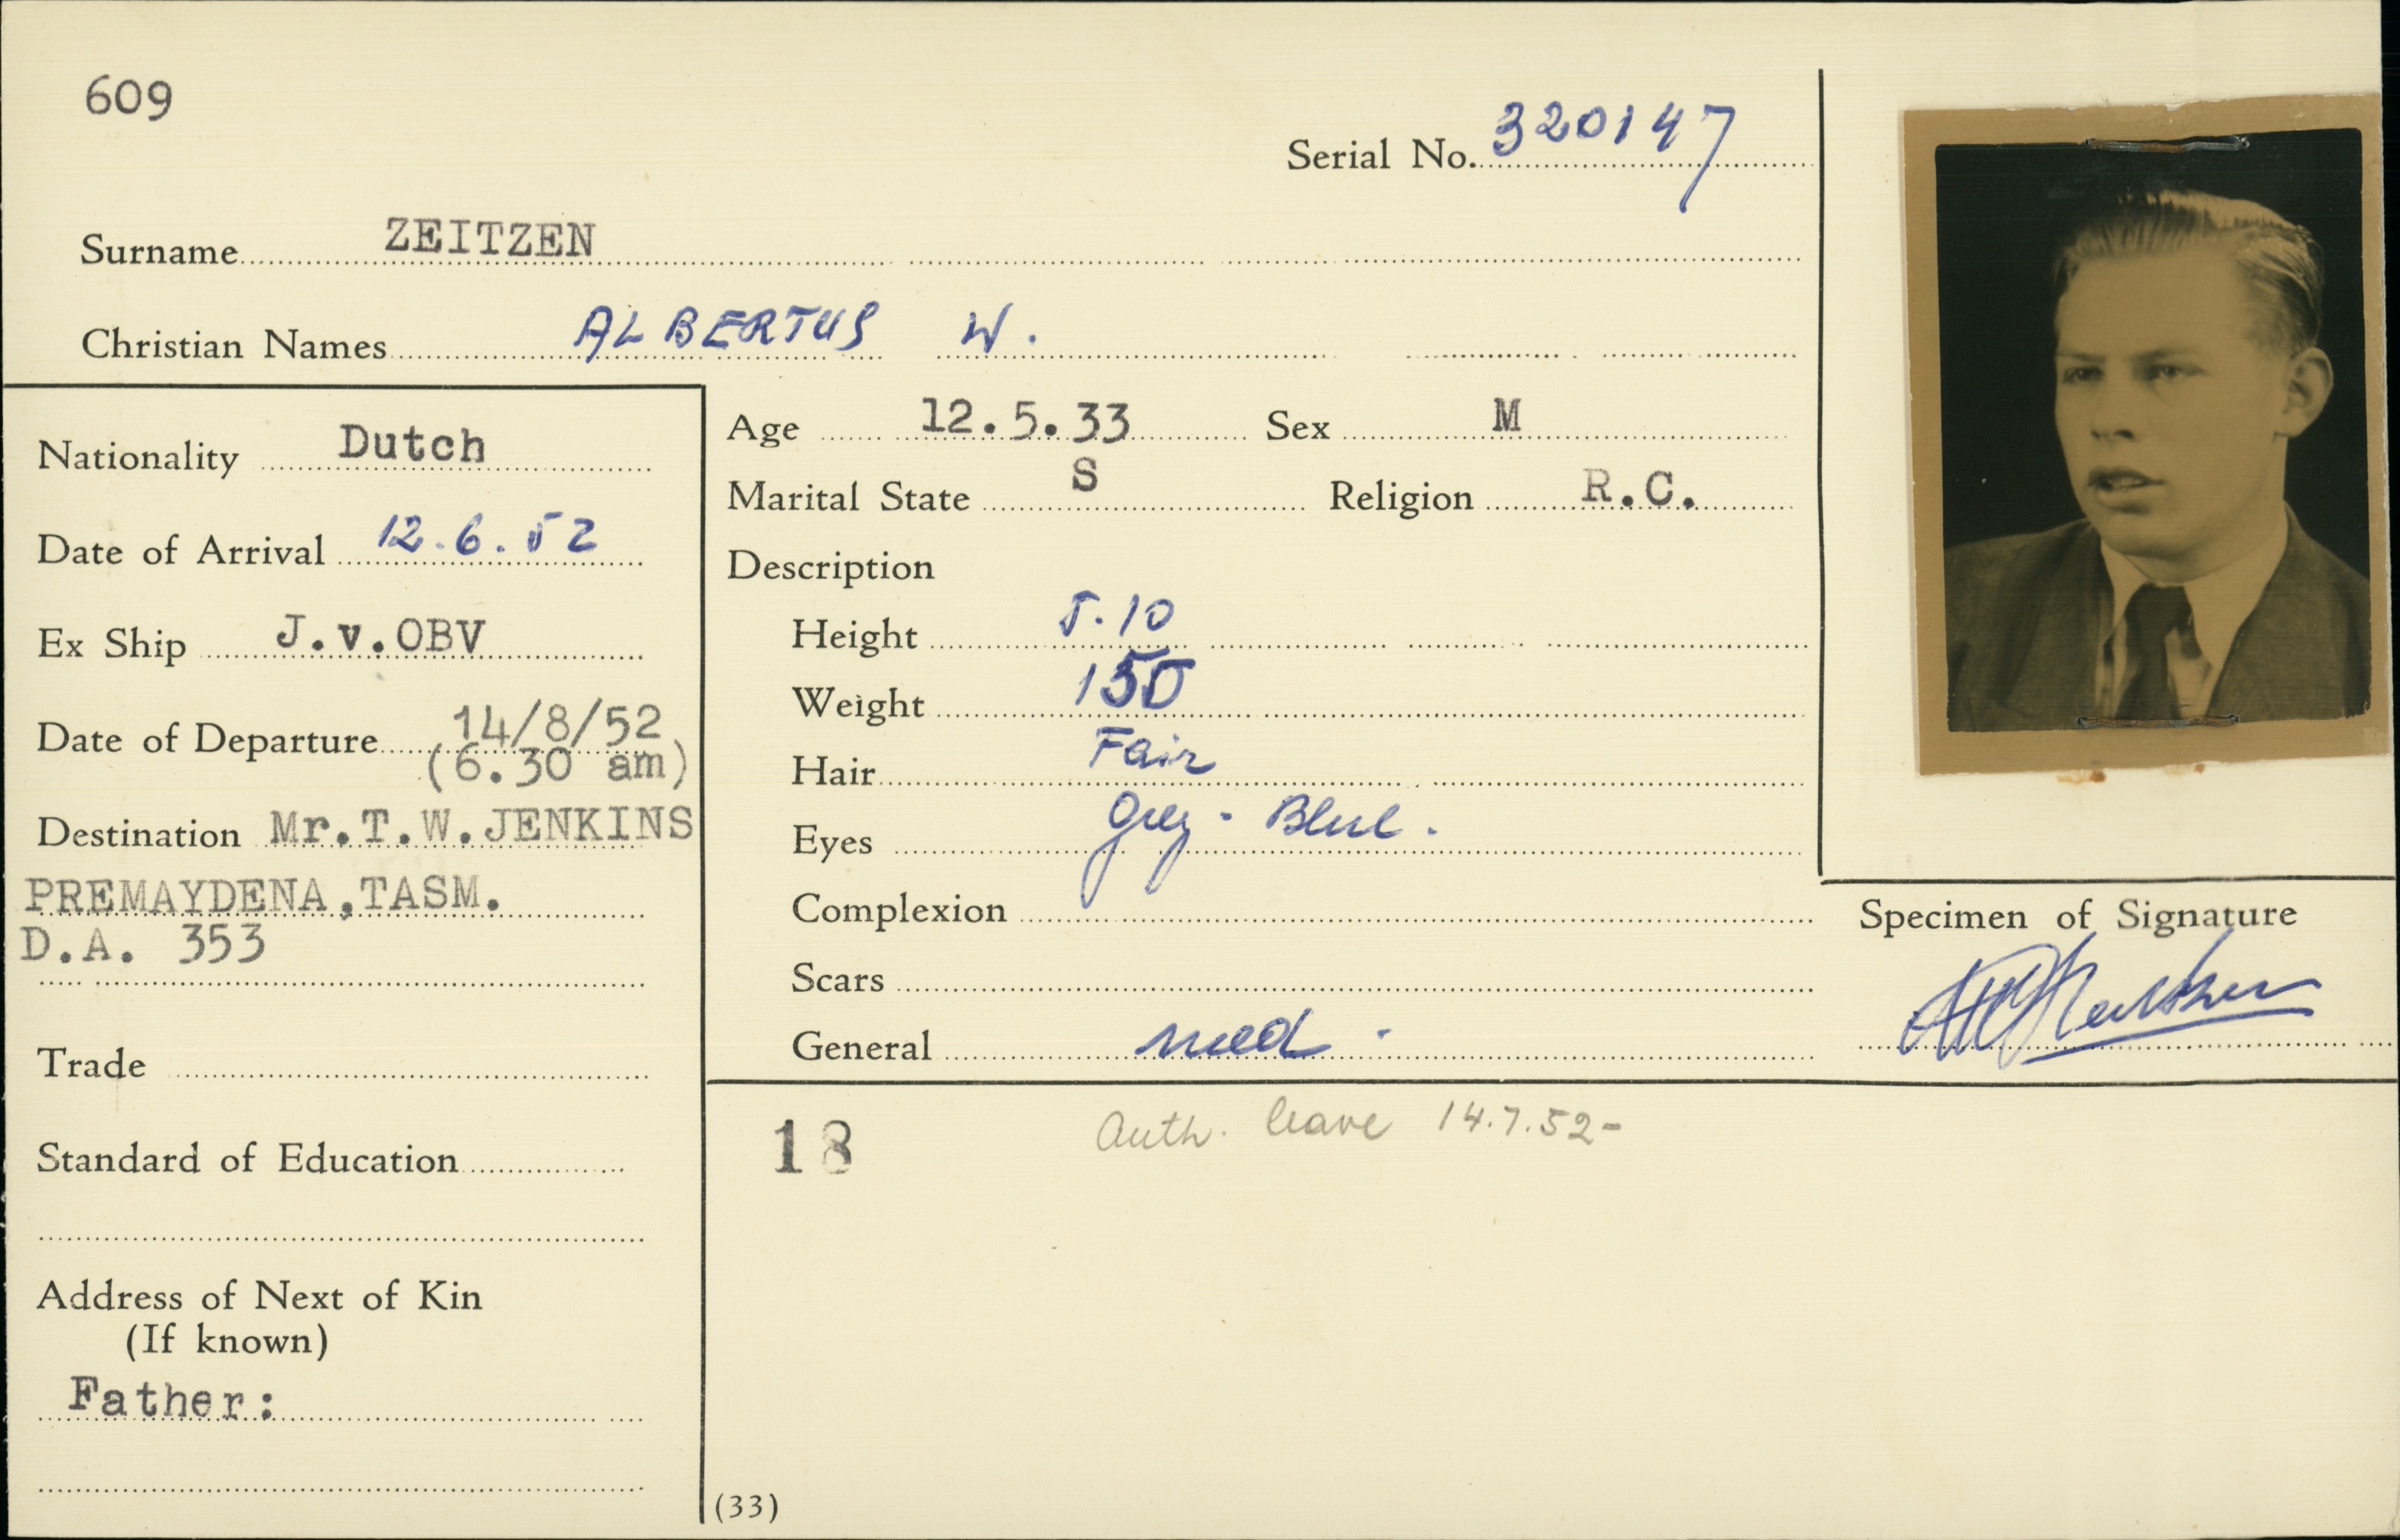 609
Serial No. 320147
Surname ZEITZEN
Christian Names ALBERTUS W.
Nationality Dutch
Date of Arrival 12.6.52
Ex Ship J.v.OBV
Date of Departure 14/8/52
(6.30 am)
Destination Mr.T.W.JENKINS
PREMAYDENA,TASM.
D.A. 353
Trade
Standard of Education
Address of Next of Kin
(If known)
Father:
Age 12.5.33 Sex M
Marital State S Religion R.C.
Description
Height 5.10
Weight 150
Hair Fair
Eyes Grey - Blue.
Complexion
Scars
General med.
Specimen of Signature
18 Auth. leave 14.7.52-
(33)